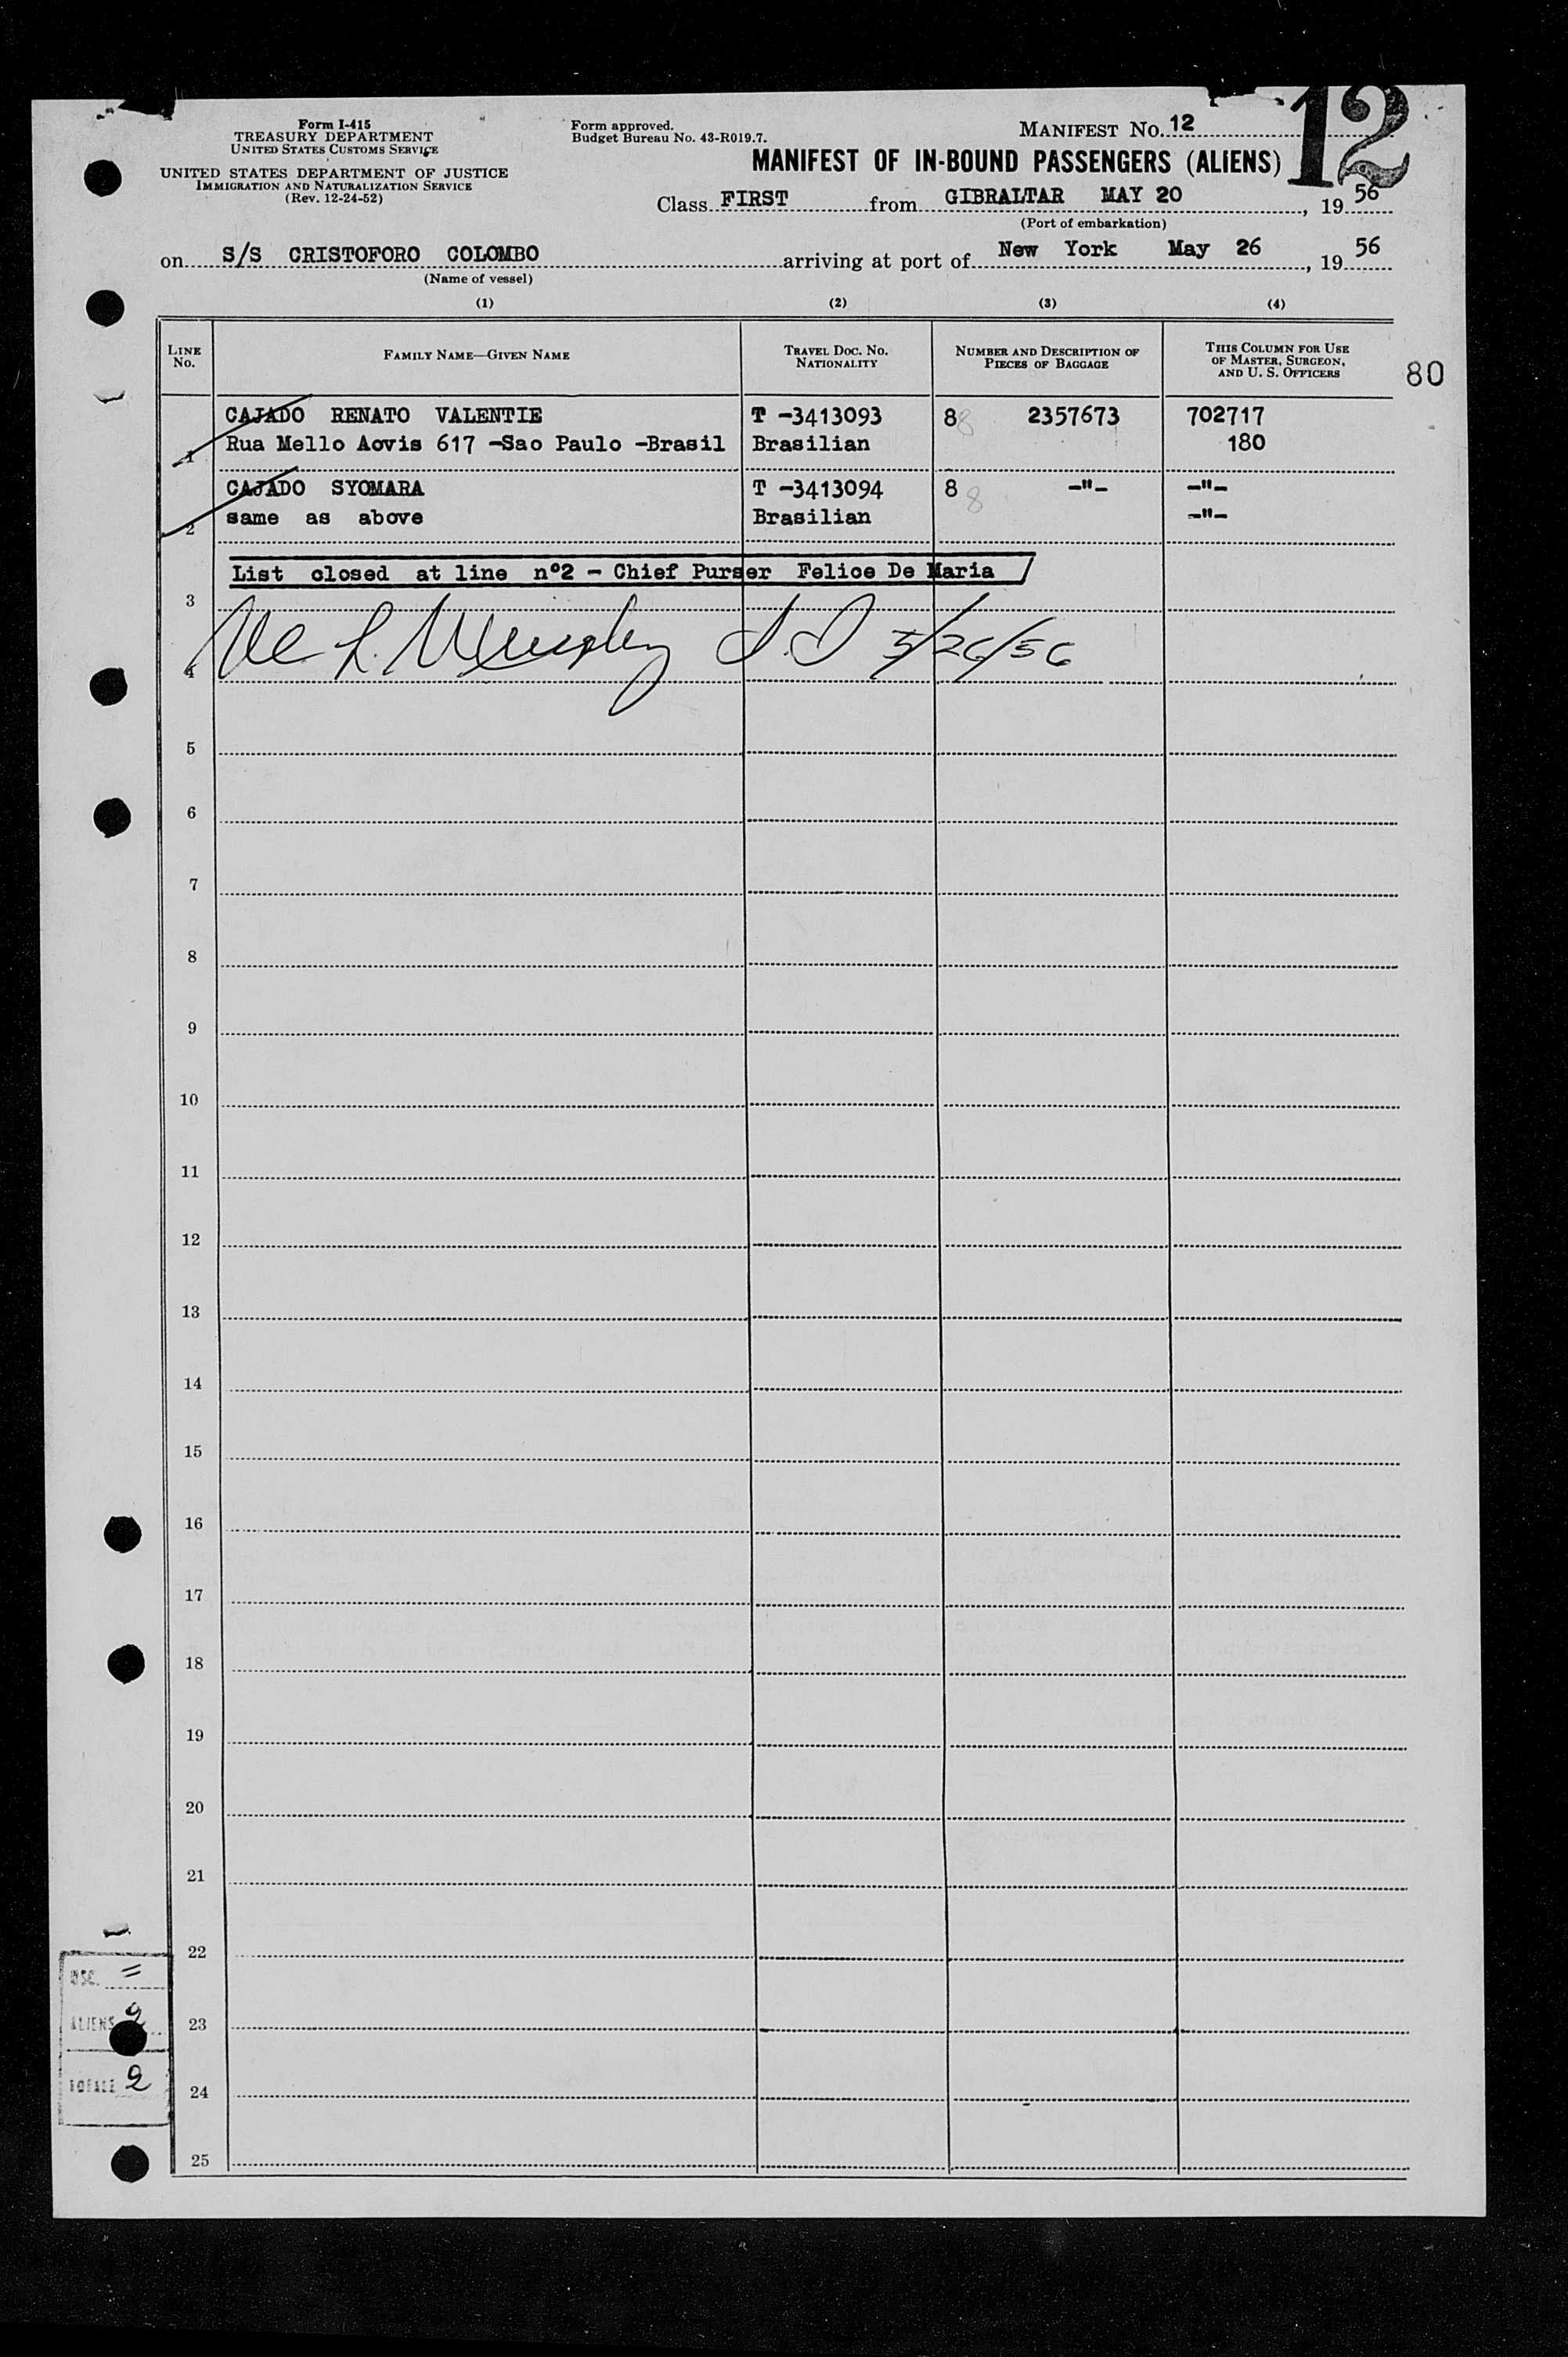 12
Form I-415
TREASURY DEPARTMENT
UNITED STATES CUSTOMS SERVICE
UNITED STATES DEPARTMENT OF JUSTICE
IMMIGRATION AND NATURALIZATION SERVICE
(Rev. 12-24-52)
Form approved.
Budget Bureau No. 43-R019.7.
MANIFEST No. 12
MANIFEST OF IN-BOUND PASSENGERS (ALIENS)
Class FIRST from GIBRALTAR MAY 20, 19 56
(Port of embarkation)
on S/S CRISTOFORO COLOMBO arriving at port of New York May 26, 19 56
(Name of vessel)
(1) (2) (3) (4)
LINE No. FAMILY NAME—GIVEN NAME TRAVEL DOC. No. NATIONALITY NUMBER AND DESCRIPTION OF PIECES OF BAGGAGE THIS COLUMN FOR USE OF MASTER, SURGEON, AND U. S. OFFICERS
80
CAJADO RENATO VALENTIE T -3413093 8 8 2357673 702717
1 Rua Mello Aovis 617 -Sao Paulo -Brasil Brasilian 180
CAJADO SYOMARA T -3413094 8 8 -"- -"-
2 same as above Brasilian -"-
List closed at line nº2 - Chief Purser Felice De Maria
3
4 5/26/56
5
6
7
8
9
10
11
12
13
14
15
16
17
18
19
20
21
22
23
24
25
USC. =
ALIENS 2
TOTALE 2